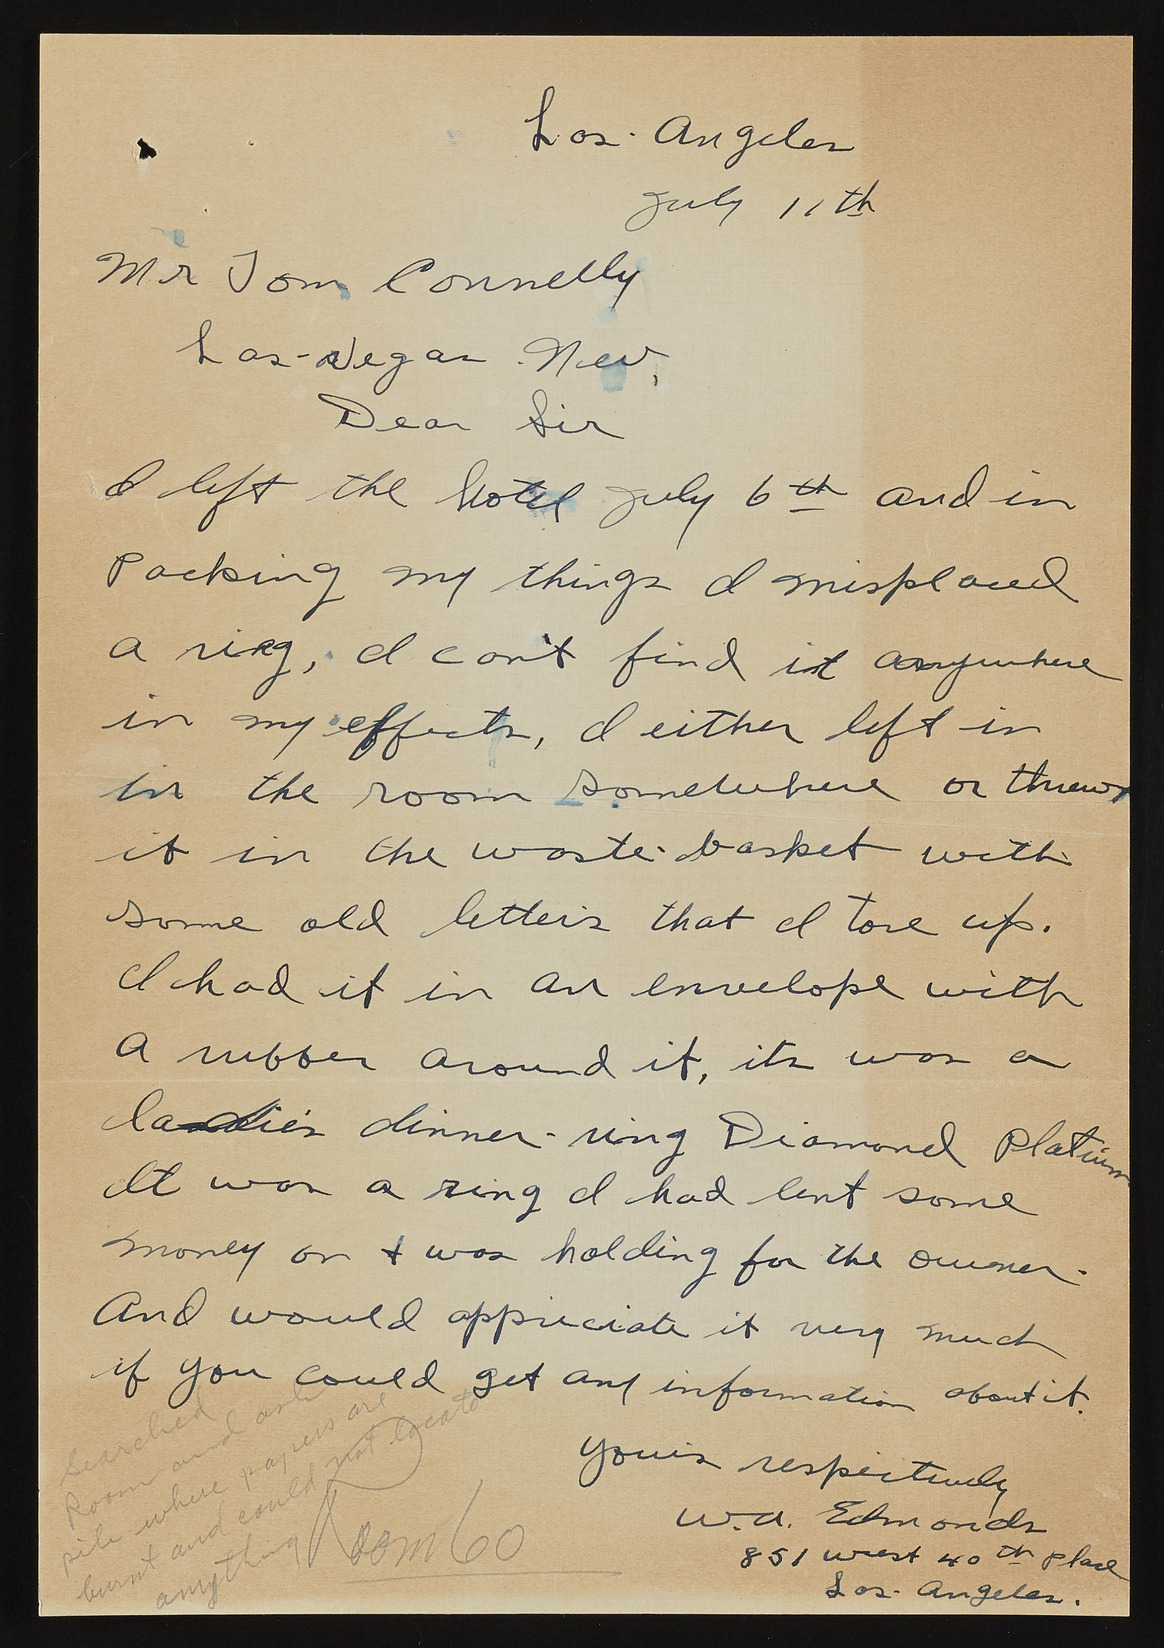 Los-Angeles
July 11th
Mr Tom Connelly
Las-Vegas Nev,
Dear Sir
I left the hotel July 6th and in
Packing my things I misplaced
a ring, I can't find it anywhere
in my effects, I either left in
in the room somewhere or threw
it in the waste-basket with
some old letters that I tore up.
I had it in an envelope with
a rubber around it, its was a
ladies dinner-ring Diamond Platium
It was a ring I had lent some
money on & was holding for the owner-
And would appriciate it very much
if you could get any information about it.
Yours respectively
W.A. Edmonds
851 west 40th Place
Los-Angeles.
Searched
Room and ash
pile where papers are
burnt and could not locate
anything
Room 60